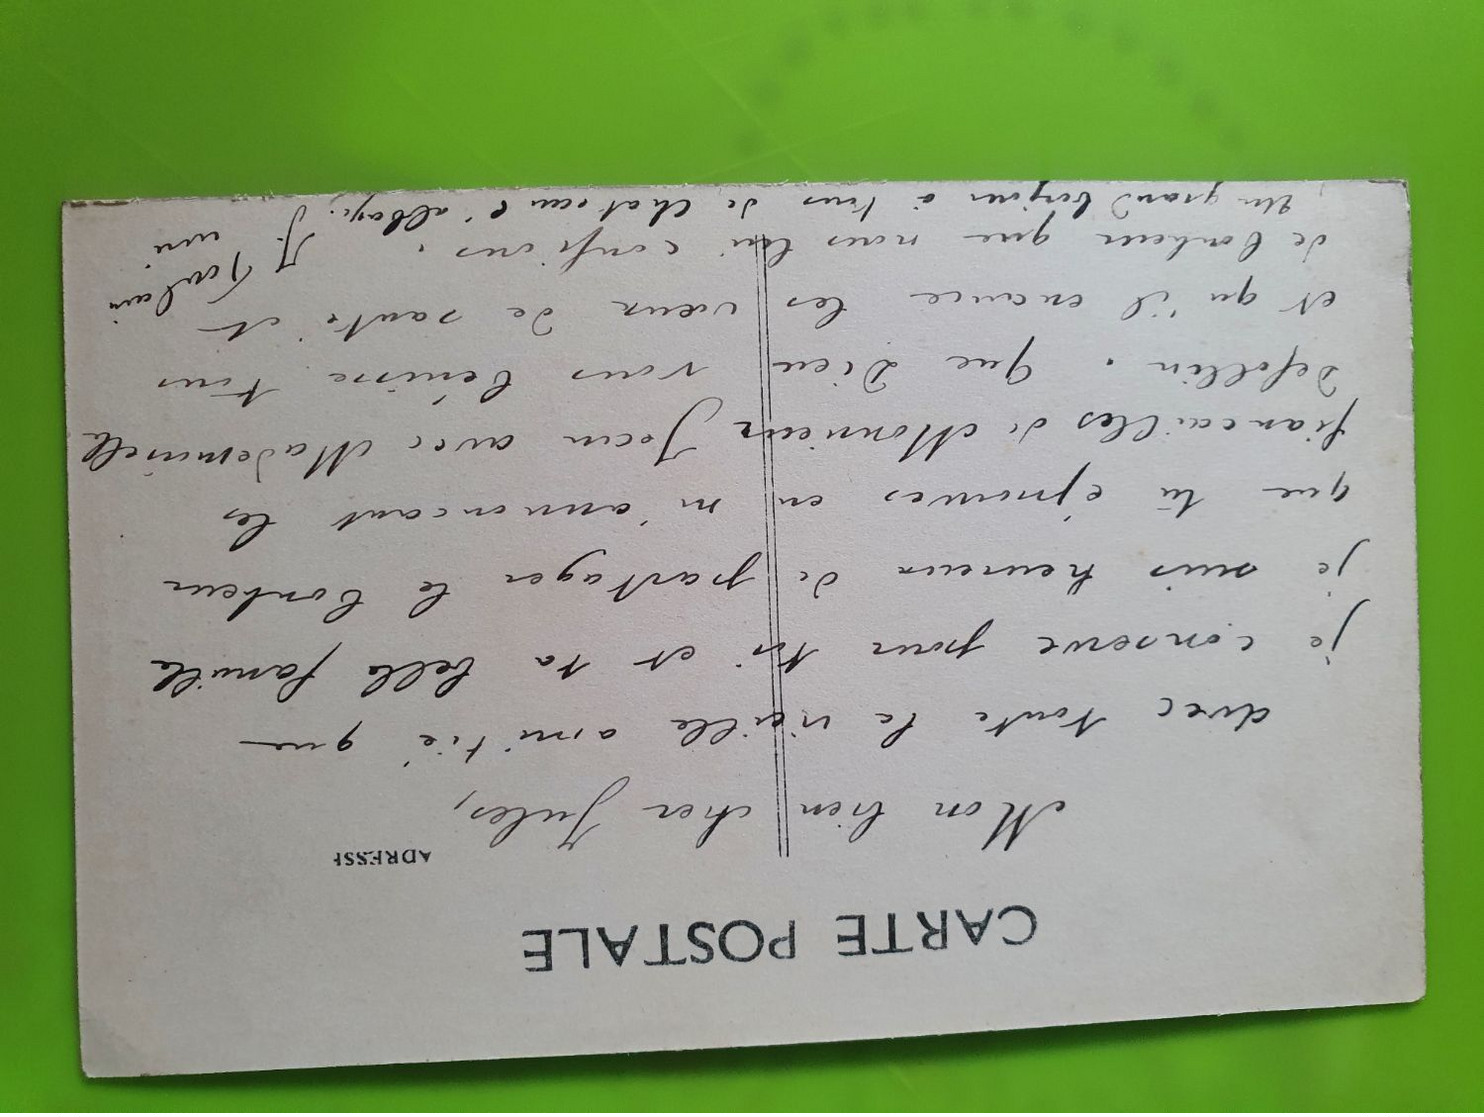 CARTE POSTALE
ADRESSE
Mon bien cher Jules,
avec toute la vieille amitié que
je conserve pour toi et ta belle famille
je suis heureux de partager le bonheur
que tu éprouves en m'annoncant les
fiancailles de Monsieur Jean avec Mademoiselle
Defollin. Que Dieu vous bénisse tous
et qu'il exauce les vœux de santé et
de bonheur que nous lui confions.
Un grand bonjour à tous de Chateau l'abbaye. J.